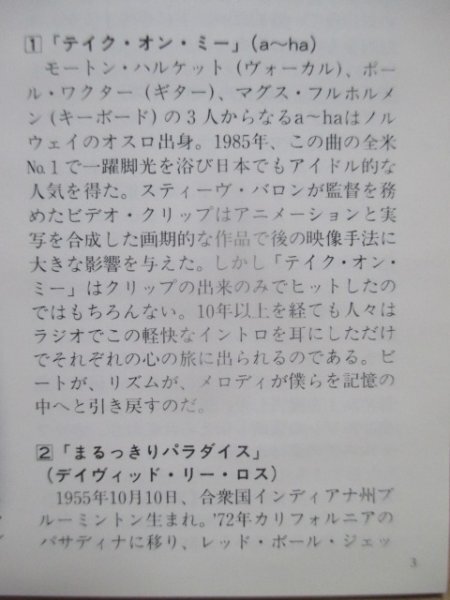 1 「テイク・オン・ミー」(a〜ha)
モートン・ハルケット (ヴォーカル)、ポー
ル・ワクター (ギター)、マグス・フルホルメ
ン(キーボード) の3人からなるa〜haはノル
ウェイのオスロ出身。1985年、この曲の全米
No.1で一躍脚光を浴び日本でもアイドル的な
人気を得た。スティーヴ・バロンが監督を務
めたビデオ・クリップはアニメーションと実
写を合成した画期的な作品で後の映像手法に
大きな影響を与えた。しかし「テイク・オン・
ミー」はクリップの出来のみでヒットしたの
ではもちろんない。10年以上を経ても人々は
ラジオでこの軽快なイントロを耳にしただけ
でそれぞれの心の旅に出られるのである。ビ
ートが、リズムが、メロディが僕らを記憶の
中へと引き戻すのだ。
2 「まるっきりパラダイス」
(デイヴィッド・リー・ロス)
1955年10月10日、合衆国インディアナ州ブ
ルーミントン生まれ。'72年カリフォルニアの
パサディナに移り、レッド・ボール・ジェッ
3